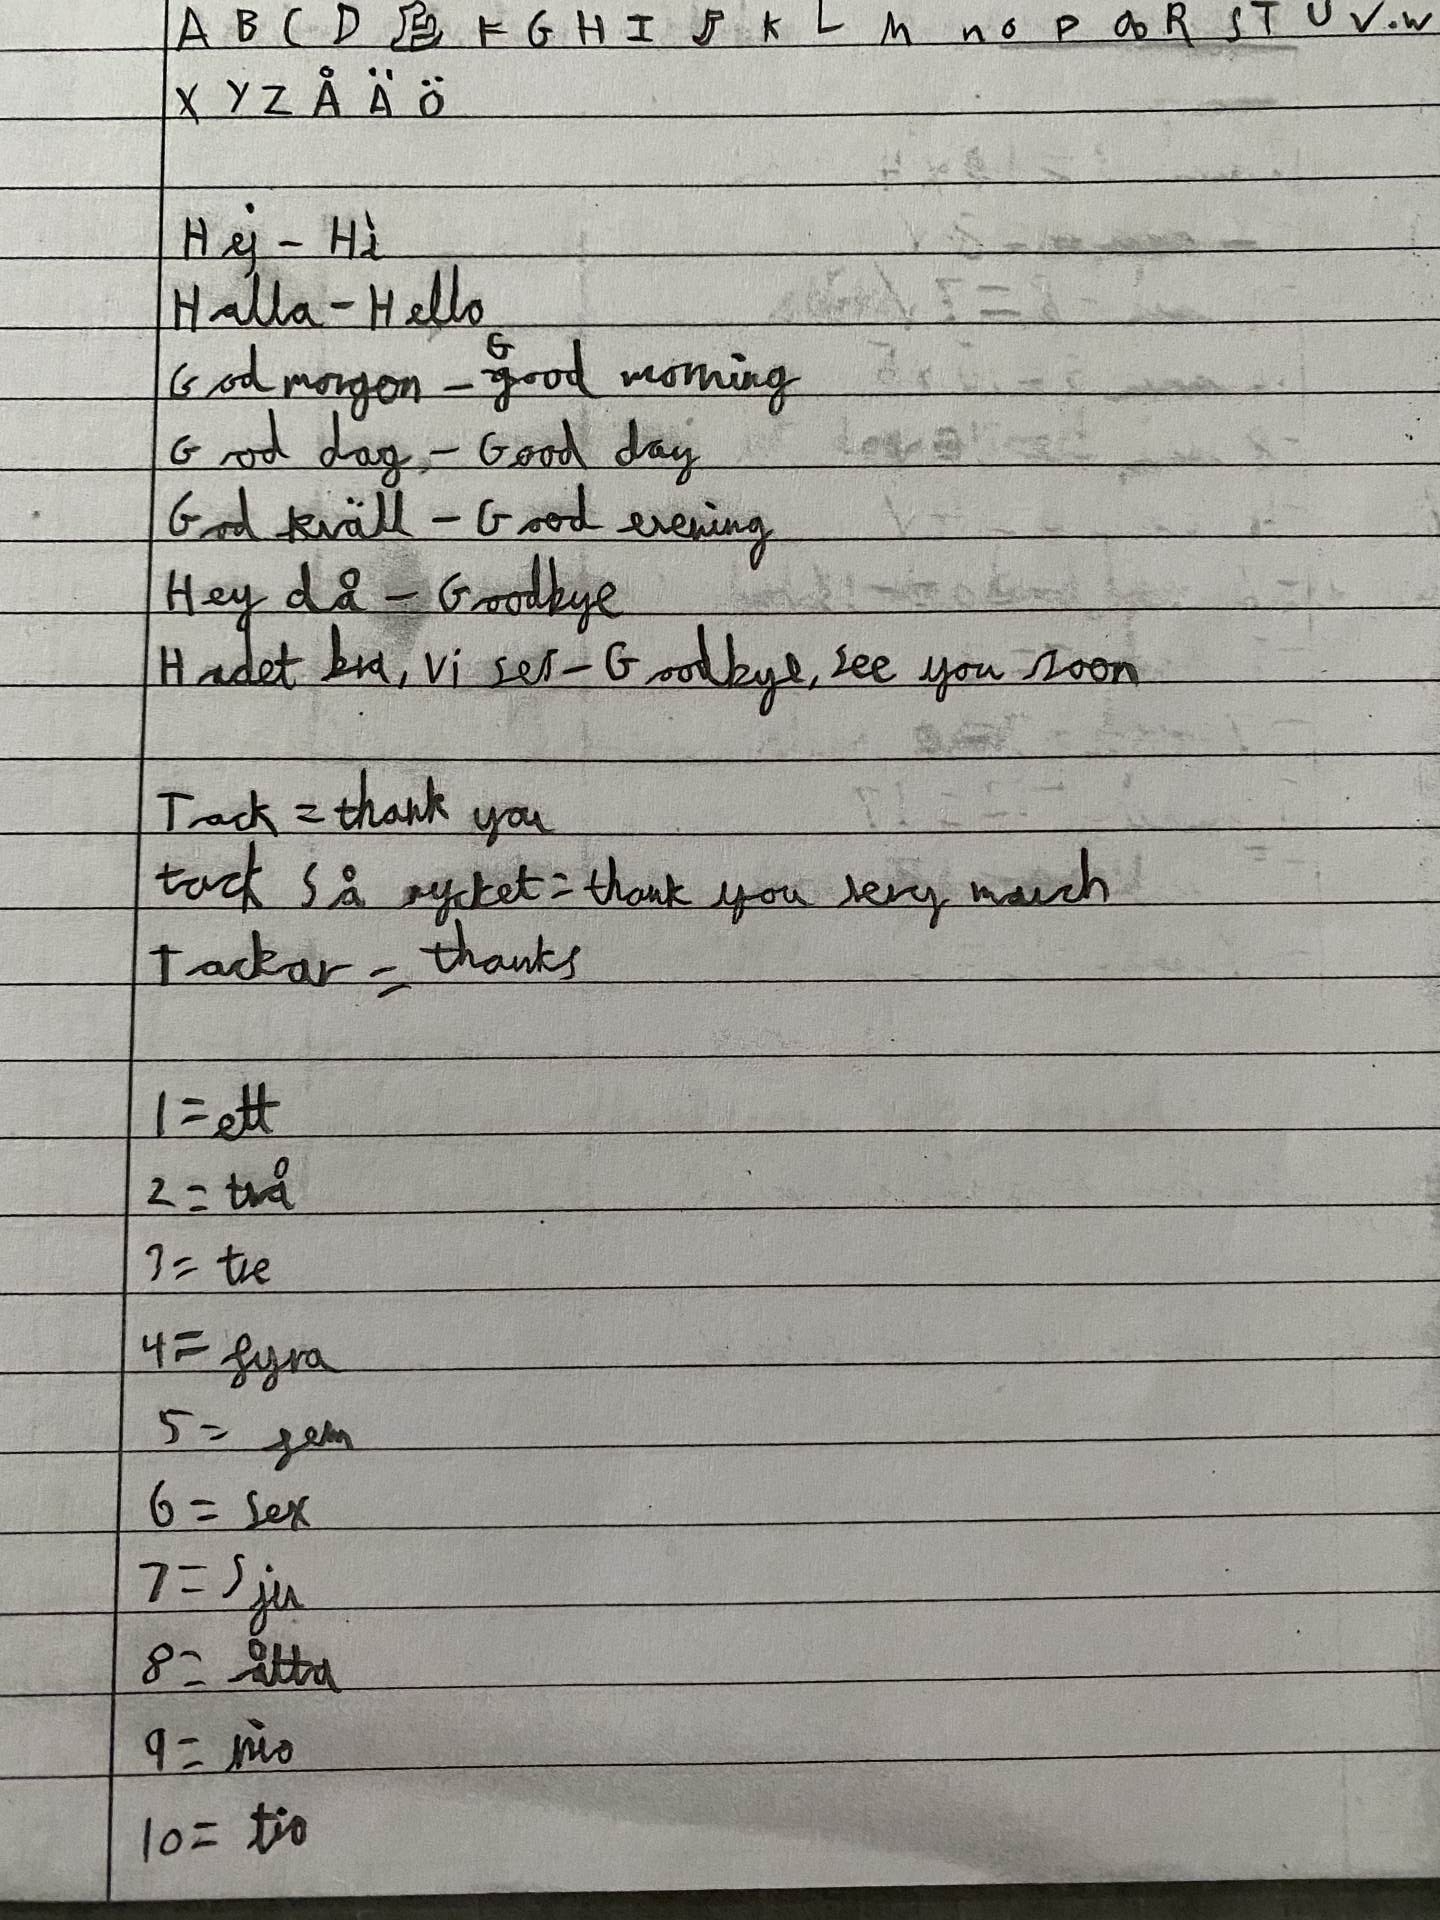 A B C D E F G H I J K L M n o P Q R S T U V.W
X Y Z Å Ä Ö
Hej - Hi
Halla - Hello
God morgon - Good morning
God dag - Good day
God kväll - Good evening
Hey då - Goodbye
Hadet bra, vi ses - Goodbye, see you soon
Tack = thank you
tack så mycket = thank you very much
Tackar = thanks
1 = ett
2 = två
3 = tre
4 = fyra
5 = fem
6 = sex
7 = Sju
8 = åtta
9 = nio
10 = tio